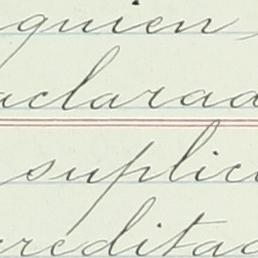 quien
aclarad
suplic
creditad